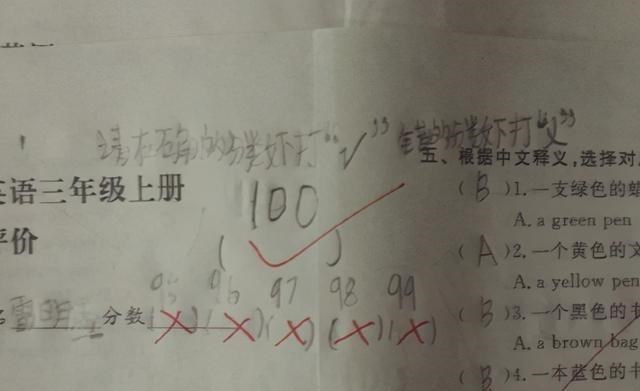 请在正确的分数下打“√” 错误的分数下打“×”
五、根据中文释义,选择对
英语三年级上册
100
( B )1.一支绿色的蜡
(√)
A. a green pen
评价
( A )2.一个黄色的文
95 96 97 98 99
A. a yellow pen
名 分数 (×)(×)(×)(×)(×)
( B )3.一个黑色的书
A. a brown bag
( B )4.一本蓝色的书